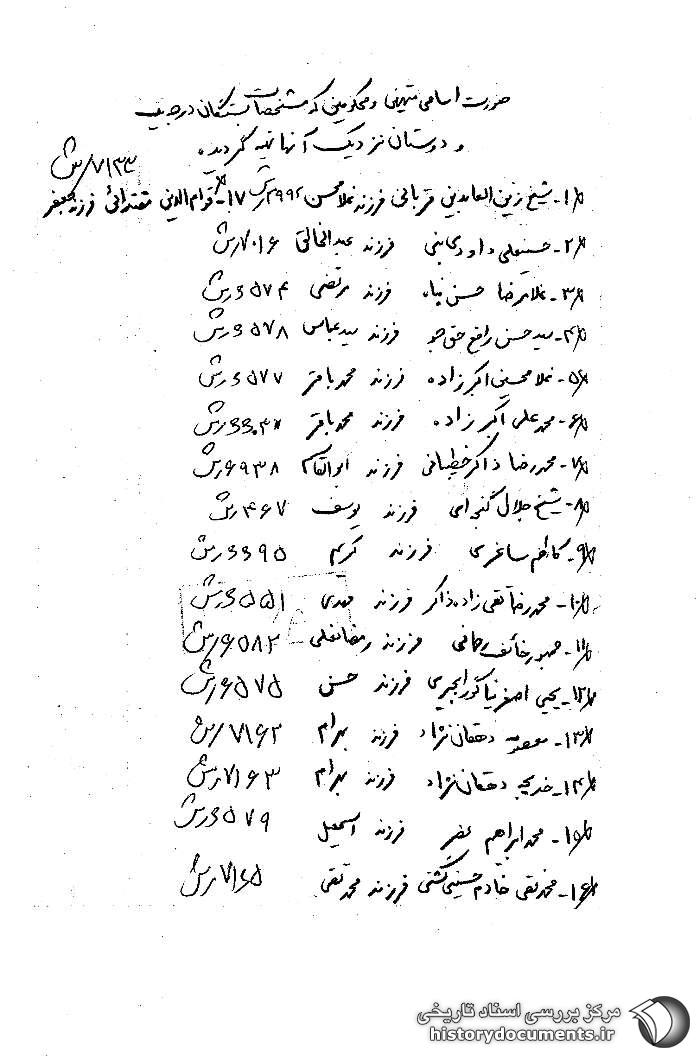 صورت اسامی متهمین و محکومینی که مشخصات بستگان درجه یک
و دوستان نزدیک آنها تهیه گردیده
۷۱۳۳/رش
۱- شیخ زین العابدین قربانی فرزند غلامحسن ۳۹۹۲/رش ۱۷- قوام الدین مقتدرائی فرزند جعفر
۲- حسینعلی داودی فرزند عبدالخالق ۷۰۱۶/رش
۳- غلامرضا حسن نیا فرزند مرتضی ۶۵۷۴/رش
۴- سید حسن رافع حق جو فرزند سید عباس ۶۵۷۸/رش
۵- غلامحسین اکبرزاده فرزند محمدباقر ۶۵۷۷/رش
۶- محمدعلی اکبرزاده فرزند محمدباقر
۷- محمدرضا ذاکر خطبائی فرزند ابوالقاسم ۶۹۳۸/رش
۸- شیخ جلال گنجه ای فرزند یوسف ۴۶۷/رش
۹- کاظم ساغری فرزند کرم ۶۶۹۵/رش
۱۰- محمدرضا تقی زاده ذاکر فرزند مهدی ۶۵۵۱/رش
۱۱- صبور خائف فرزند رمضانعلی ۶۵۸۲/رش
۱۲- یحیی اصغرنیا گورابجیری فرزند حسن ۶۵۷۵/رش
۱۳- معصومه دهقان نژاد فرزند بهرام ۷۱۶۲/رش
۱۴- خدیجه دهقان نژاد فرزند بهرام ۷۱۶۳/رش
۱۵- محمدابراهیم فرزند اسمعیل ۶۵۷۹/رش
۱۶- محمدتقی خادم حسینی گشتی فرزند محمدتقی ۷۱۶۵/رش
مرکز بررسی اسناد تاریخی
historydocuments.ir